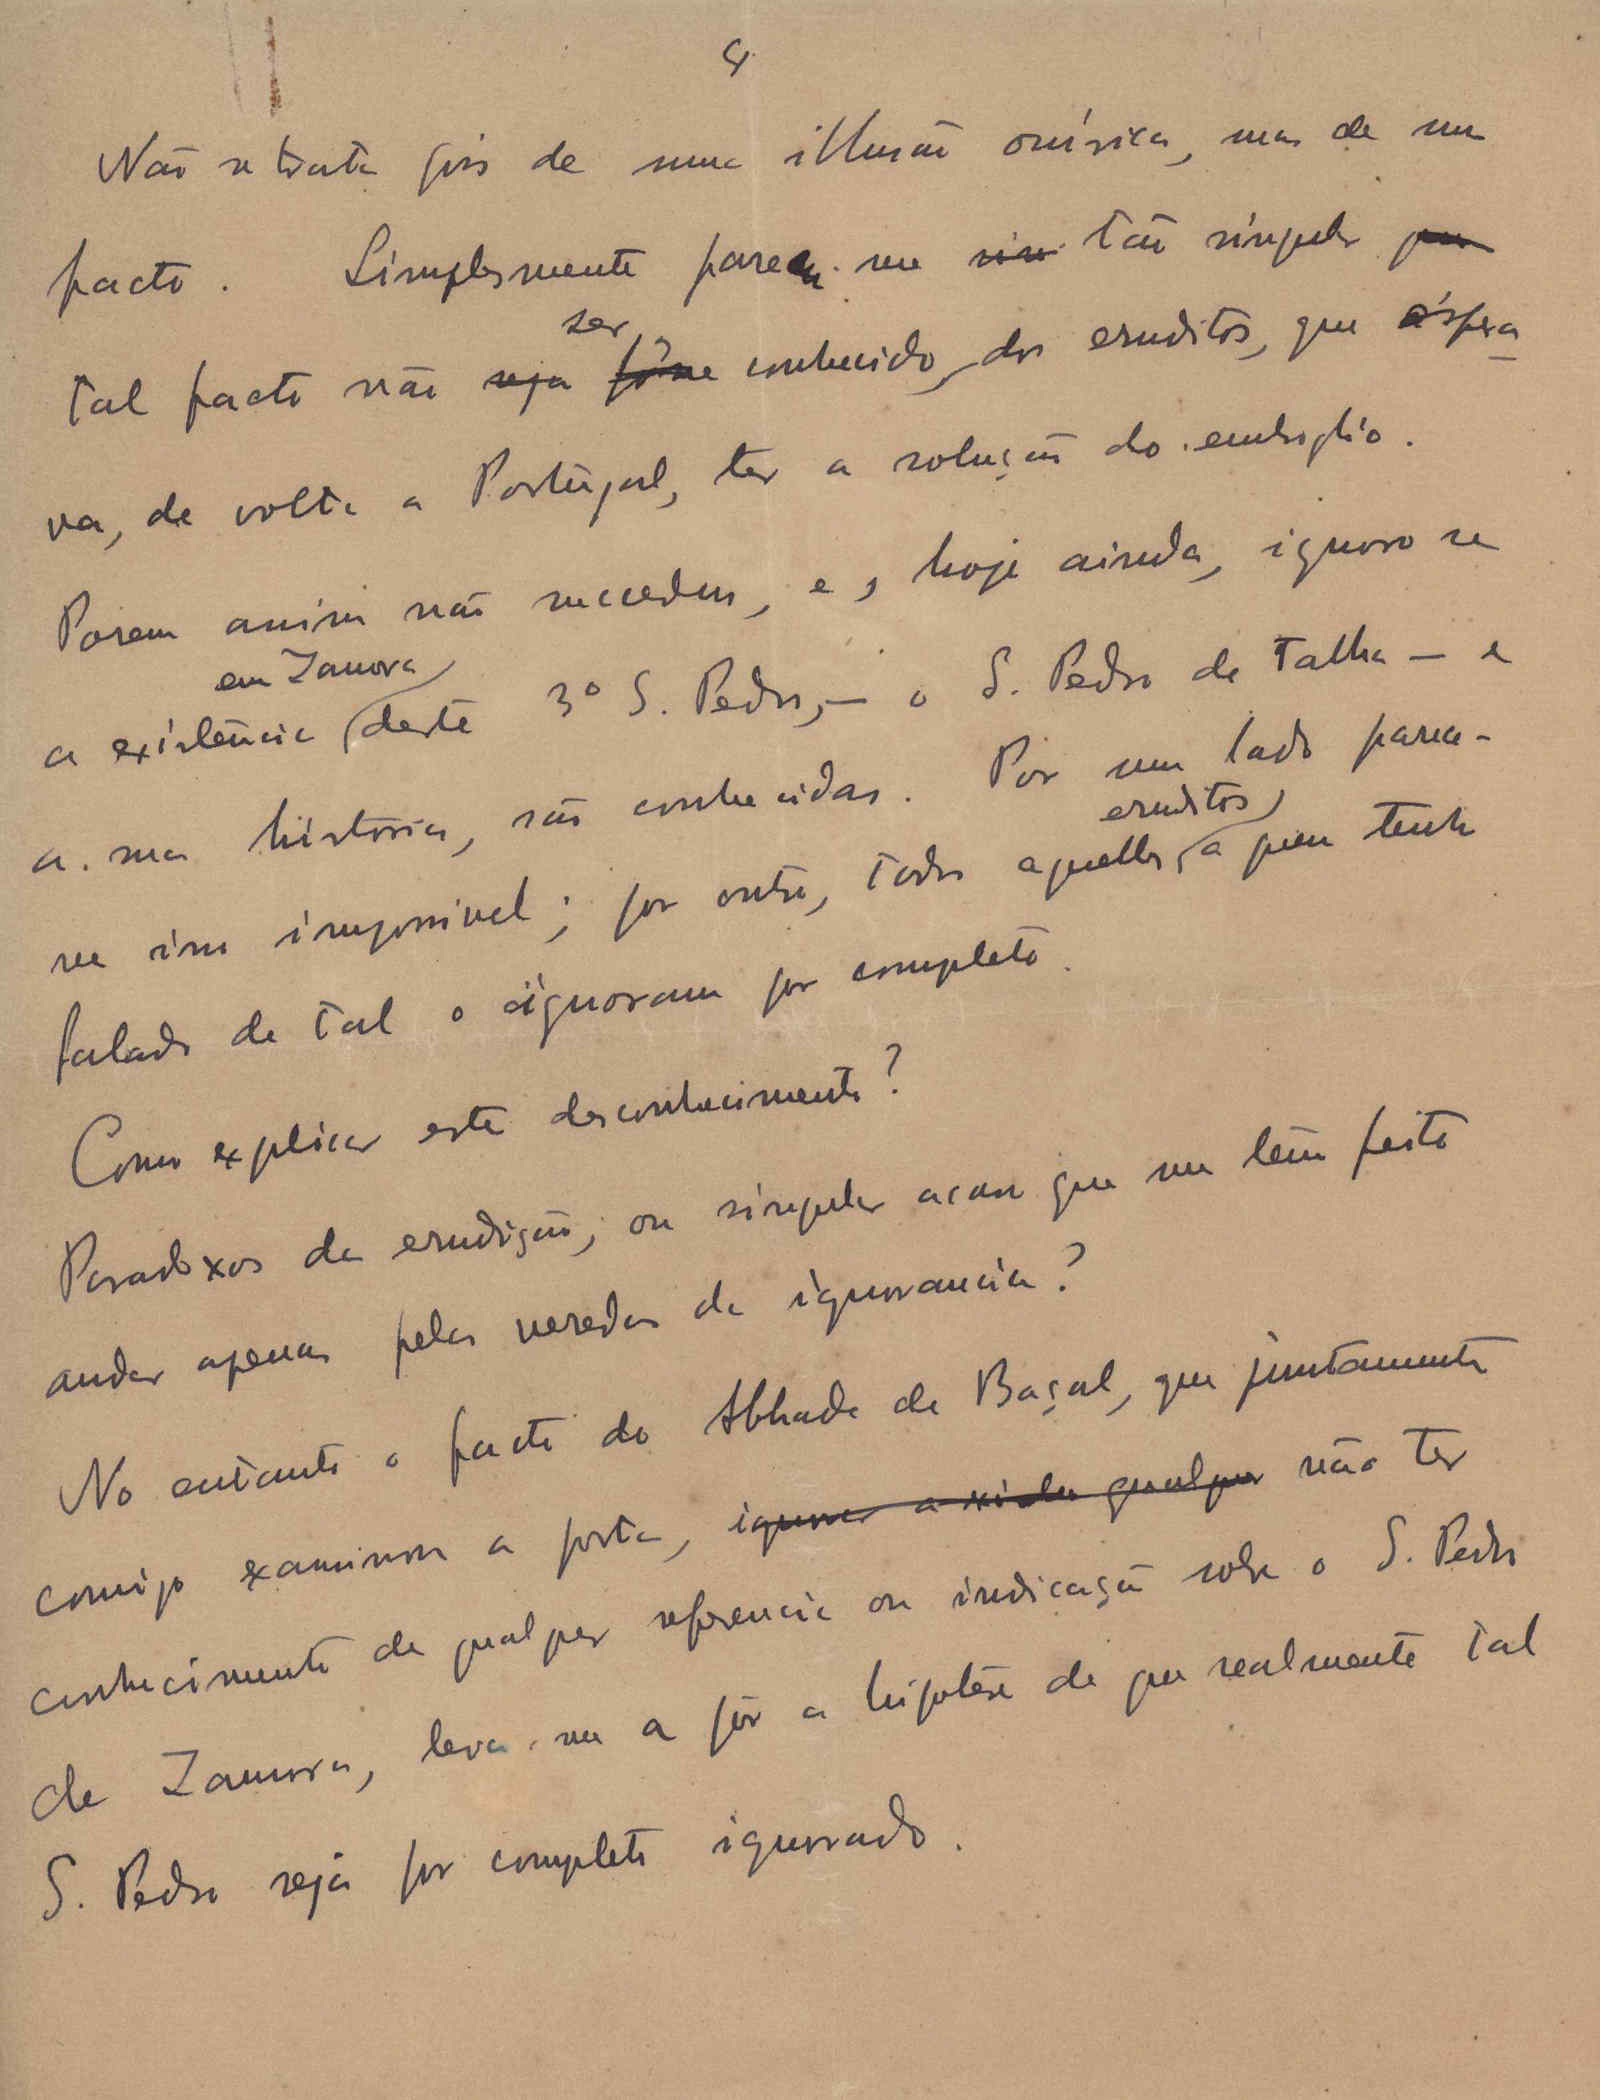 4
Não se trata pois de uma illusão onírica, mas de um
facto. Simplesmente pareceu-me tão singular
ser
tal facto não seja fôsse conhecido, dos eruditos, que espera
va, de volta a Portugal, ter a solução do embroglio.
Porem assim não succedeu, e, hoje ainda, ignoro se
em Zamora
a existência deste 3º S. Pedro, — o S. Pedro de Talha — e
a sua historia, são conhecidas. Por um lado parece-
eruditos
me isso impossivel; por outro, todos aquelles, a quem tenho
falado de tal o ignoram por completo.
Como explicar este desconhecimento?
Paradoxos da erudição, ou singular acaso que me tem feito
andar apenas pelas veredas da ignorancia?
No entanto o facto do Abbade de Baçal, que juntamente
comigo examinou a porta, ignorar a existe qualquer não ter
conhecimento de qualquer referencia ou indicação sobre o S. Pedro
de Zamora, leva-me a pôr a hipotese de que realmente tal
S. Pedro seja por completo ignorado.